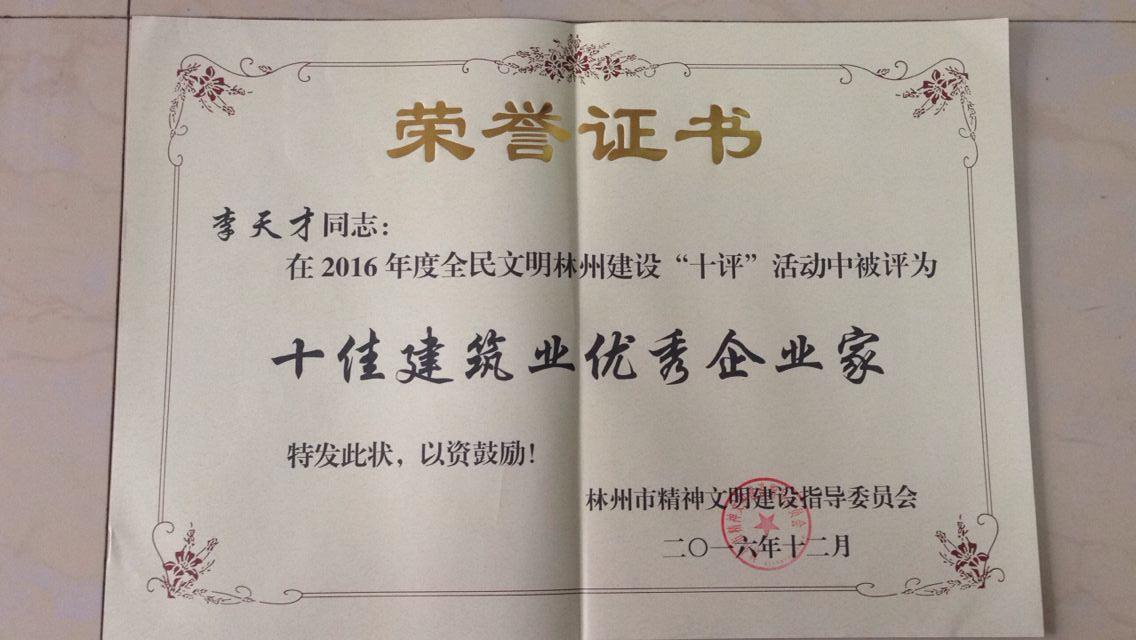 荣誉证书
李天才同志：
在2016年度全民文明林州建设“十评”活动中被评为
十佳建筑业优秀企业家
特发此状，以资鼓励！
林州市精神文明建设指导委员会
二〇一六年十二月